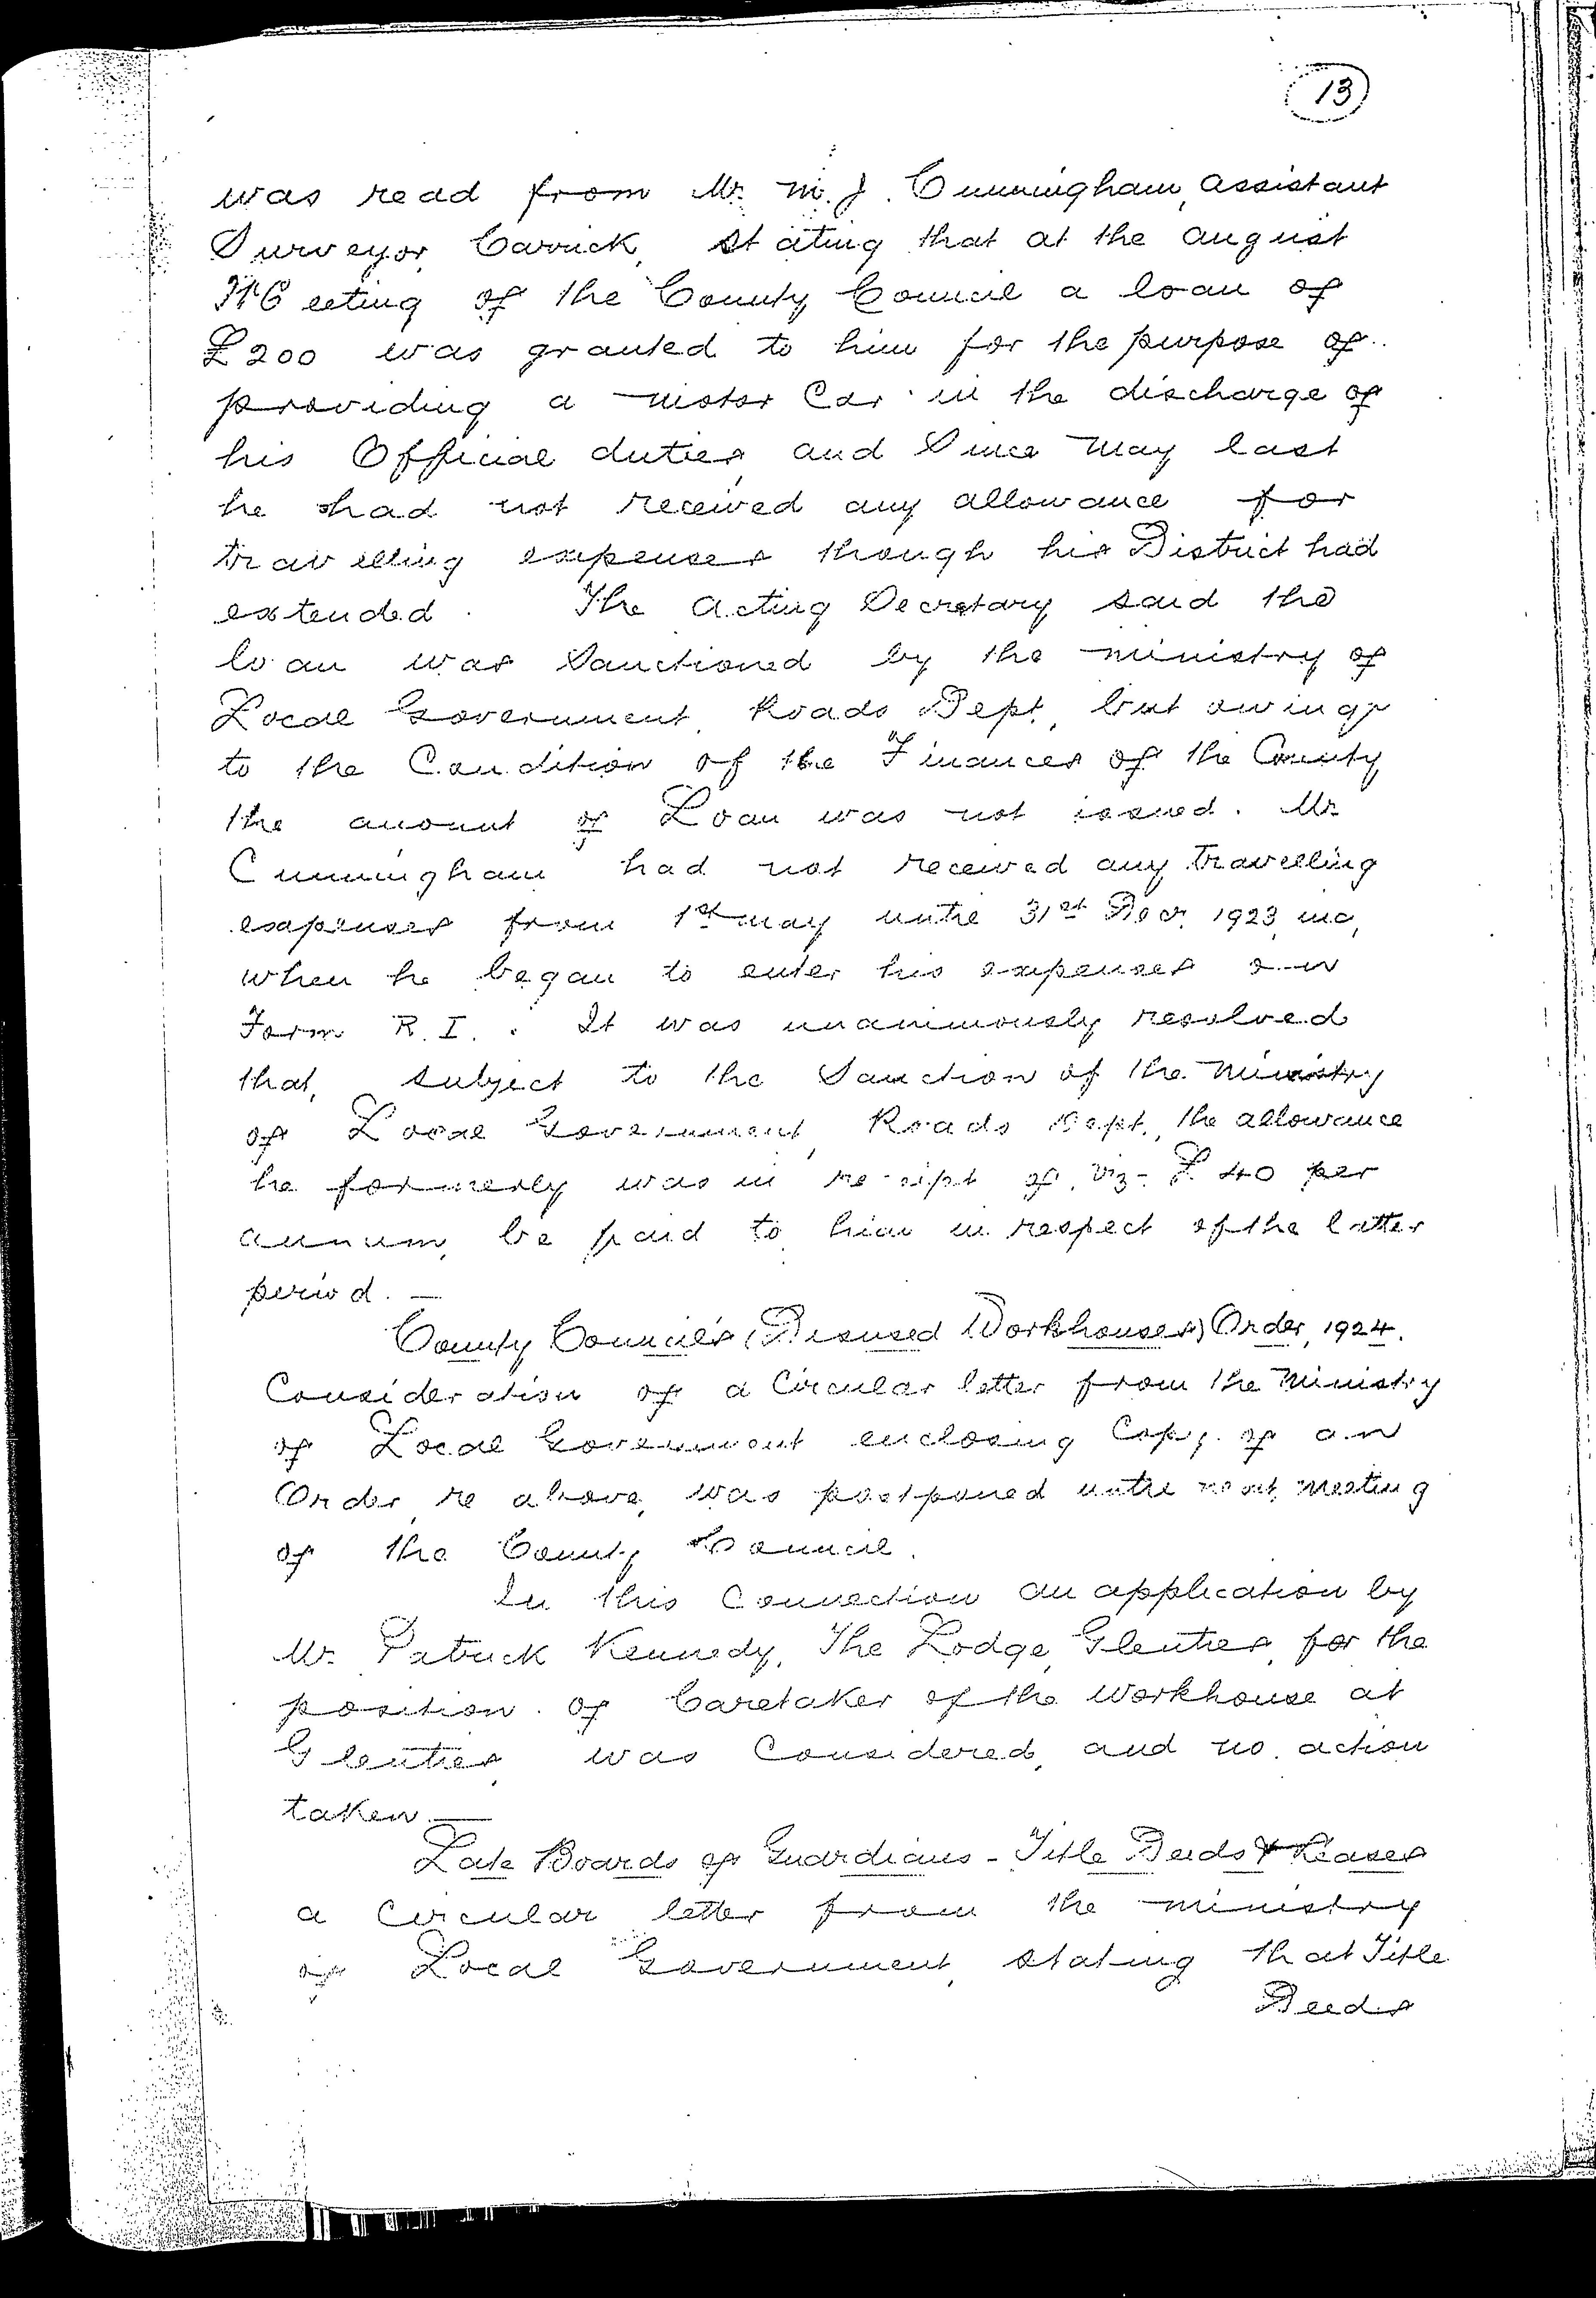 13
was read from Mr. M. J. Cunningham, Assistant
Surveyor, Carrick, stating that at the August
Meeting of the County Council a loan of
£200 was granted to him for the purpose of
providing a motor Car in the discharge of
his Official duties, and Since May last
he had not received any allowance for
travelling expenses though his District had
extended. The Acting Secretary said the
loan was Sanctioned by the Ministry of
Local Government, Roads Dept, but owing
to the Condition of the Finances of the County
the amount of Loan was not issued. Mr.
Cunningham had not received any Travelling
expenses from 1st May until 31st Decr. 1923, inc,
when he began to enter his expenses on
Form R.I. It was unanimously resolved
that, subject to the Sanction of the Ministry
of Local Government, Roads Dept., the allowance
he formerly was in receipt of, viz- £40 per
annum, be paid to him in respect of the latter
period. —
County Councils (Disused Workhouses) Order, 1924.
Consideration of a Circular letter from the Ministry
of Local Government enclosing Copy of an
Order re above, was postponed until next meeting
of the County Council.
In this Connection an application by
Mr. Patrick Kennedy, The Lodge, Glenties, for the
position of Caretaker of the Workhouse at
Glenties, was Considered, and no action
taken. —
Late Boards of Guardians - Title Deeds & Leases
a Circular letter from the Ministry
of Local Government, stating that Title
Deeds